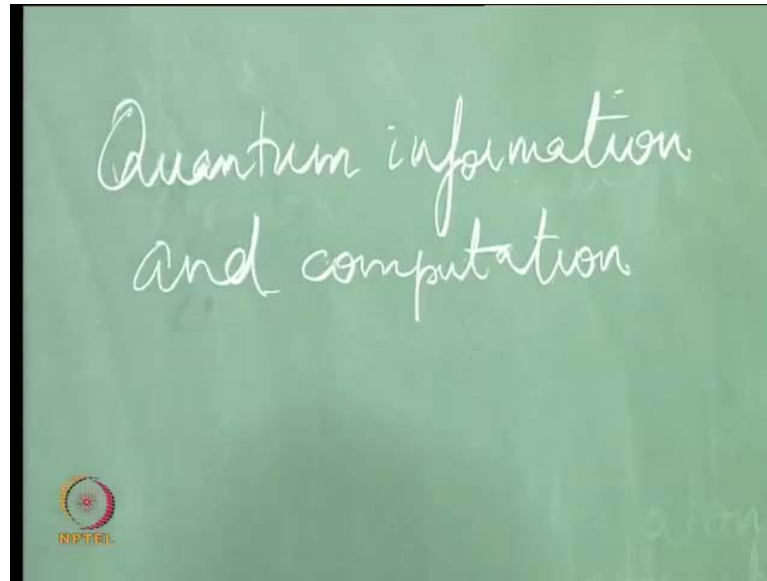 Quantum information
and computation
NPTEL